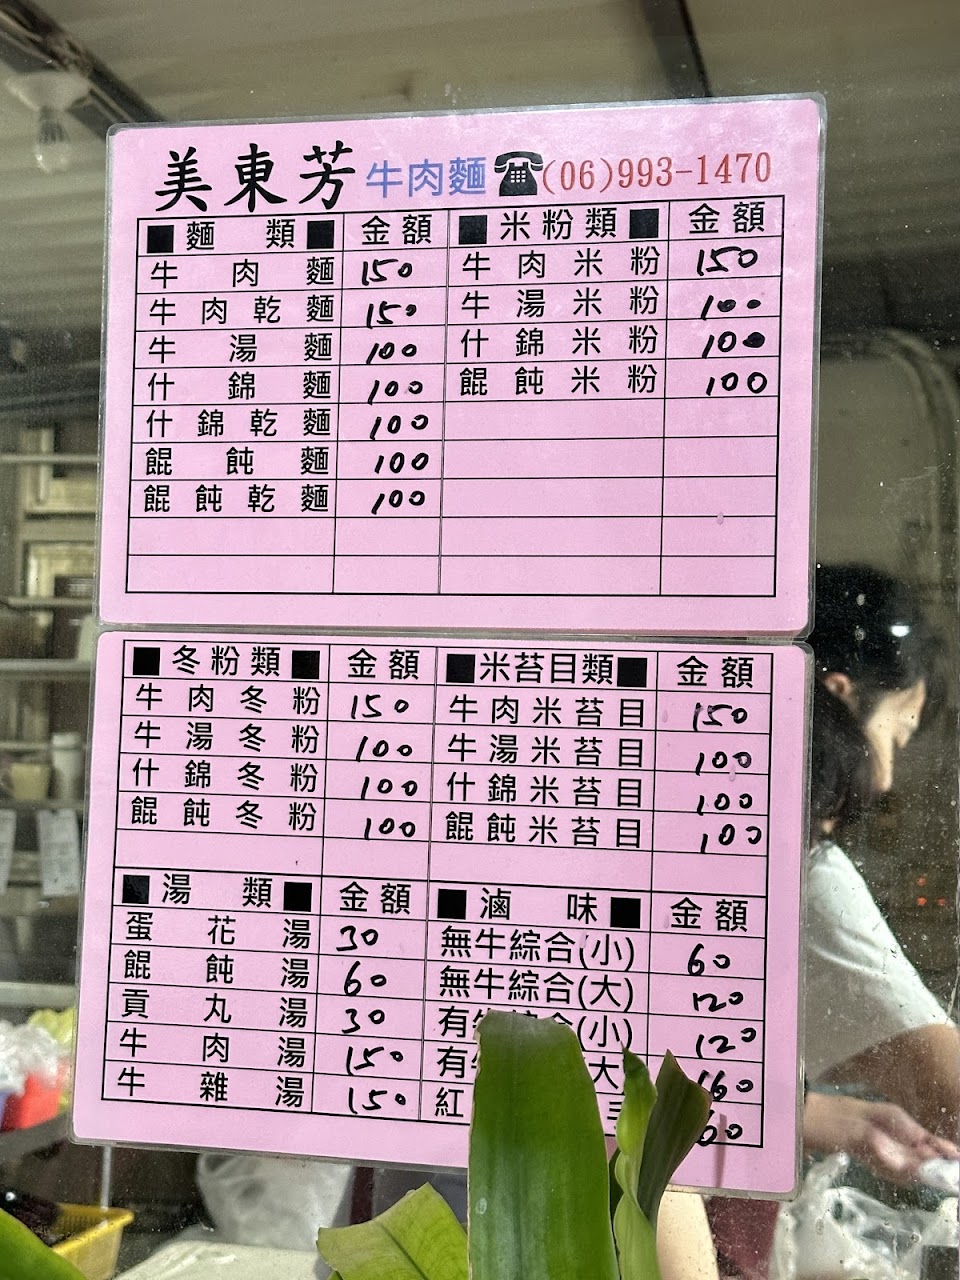 美東芳 牛肉麵 ☎(06)993-1470
■麵類■ 金額 ■米粉類■ 金額
牛肉麵 150 牛肉米粉 150
牛肉乾麵 150 牛湯米粉 100
牛湯麵 100 什錦米粉 100
什錦麵 100 餛飩米粉 100
什錦乾麵 100
餛飩麵 100
餛飩乾麵 100
■冬粉類■ 金額 ■米苔目類■ 金額
牛肉冬粉 150 牛肉米苔目 150
牛湯冬粉 100 牛湯米苔目 100
什錦冬粉 100 什錦米苔目 100
餛飩冬粉 100 餛飩米苔目 100
■湯類■ 金額 ■滷味■ 金額
蛋花湯 30 無牛綜合(小) 60
餛飩湯 60 無牛綜合(大) 120
貢丸湯 30 有牛綜合(小) 120
牛肉湯 150 有 大 160
牛雜湯 150 紅 60